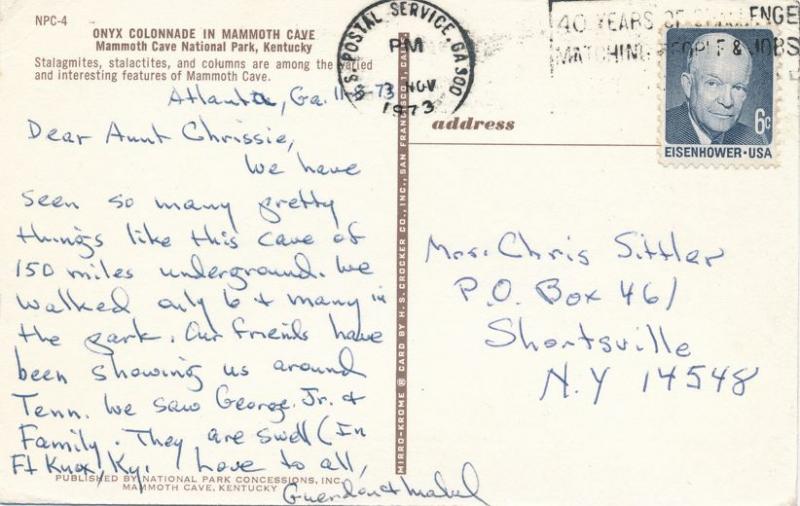 NPC-4
ONYX COLONNADE IN MAMMOTH CAVE
Mammoth Cave National Park, Kentucky
Stalagmites, stalactites, and columns are among the varied
and interesting features of Mammoth Cave.
Atlanta, Ga. 11-8-73
Dear Aunt Chrissie,
We have
seen so many pretty
things like this cave of
150 miles underground. We
walked only 6 + many in
the park. Our friends have
been showing us around
Tenn. We saw George Jr. +
Family. They are swell (In
Ft Knox, Ky. Love to all,
Guerdon + Mabel
PUBLISHED BY NATIONAL PARK CONCESSIONS, INC.
MAMMOTH CAVE, KENTUCKY
MIRRO-KROME ® CARD BY H. S. CROCKER CO., INC., SAN FRANCISCO 1, CALIF.
U.S. POSTAL SERVICE, GA 300
PM
8 NOV
1973
40 YEARS OF CHALLENGE
MATCHING PEOPLE & JOBS
6c
EISENHOWER·USA
address
Mrs. Chris Sittler
P.O. Box 461
Shortsville
N.Y 14548